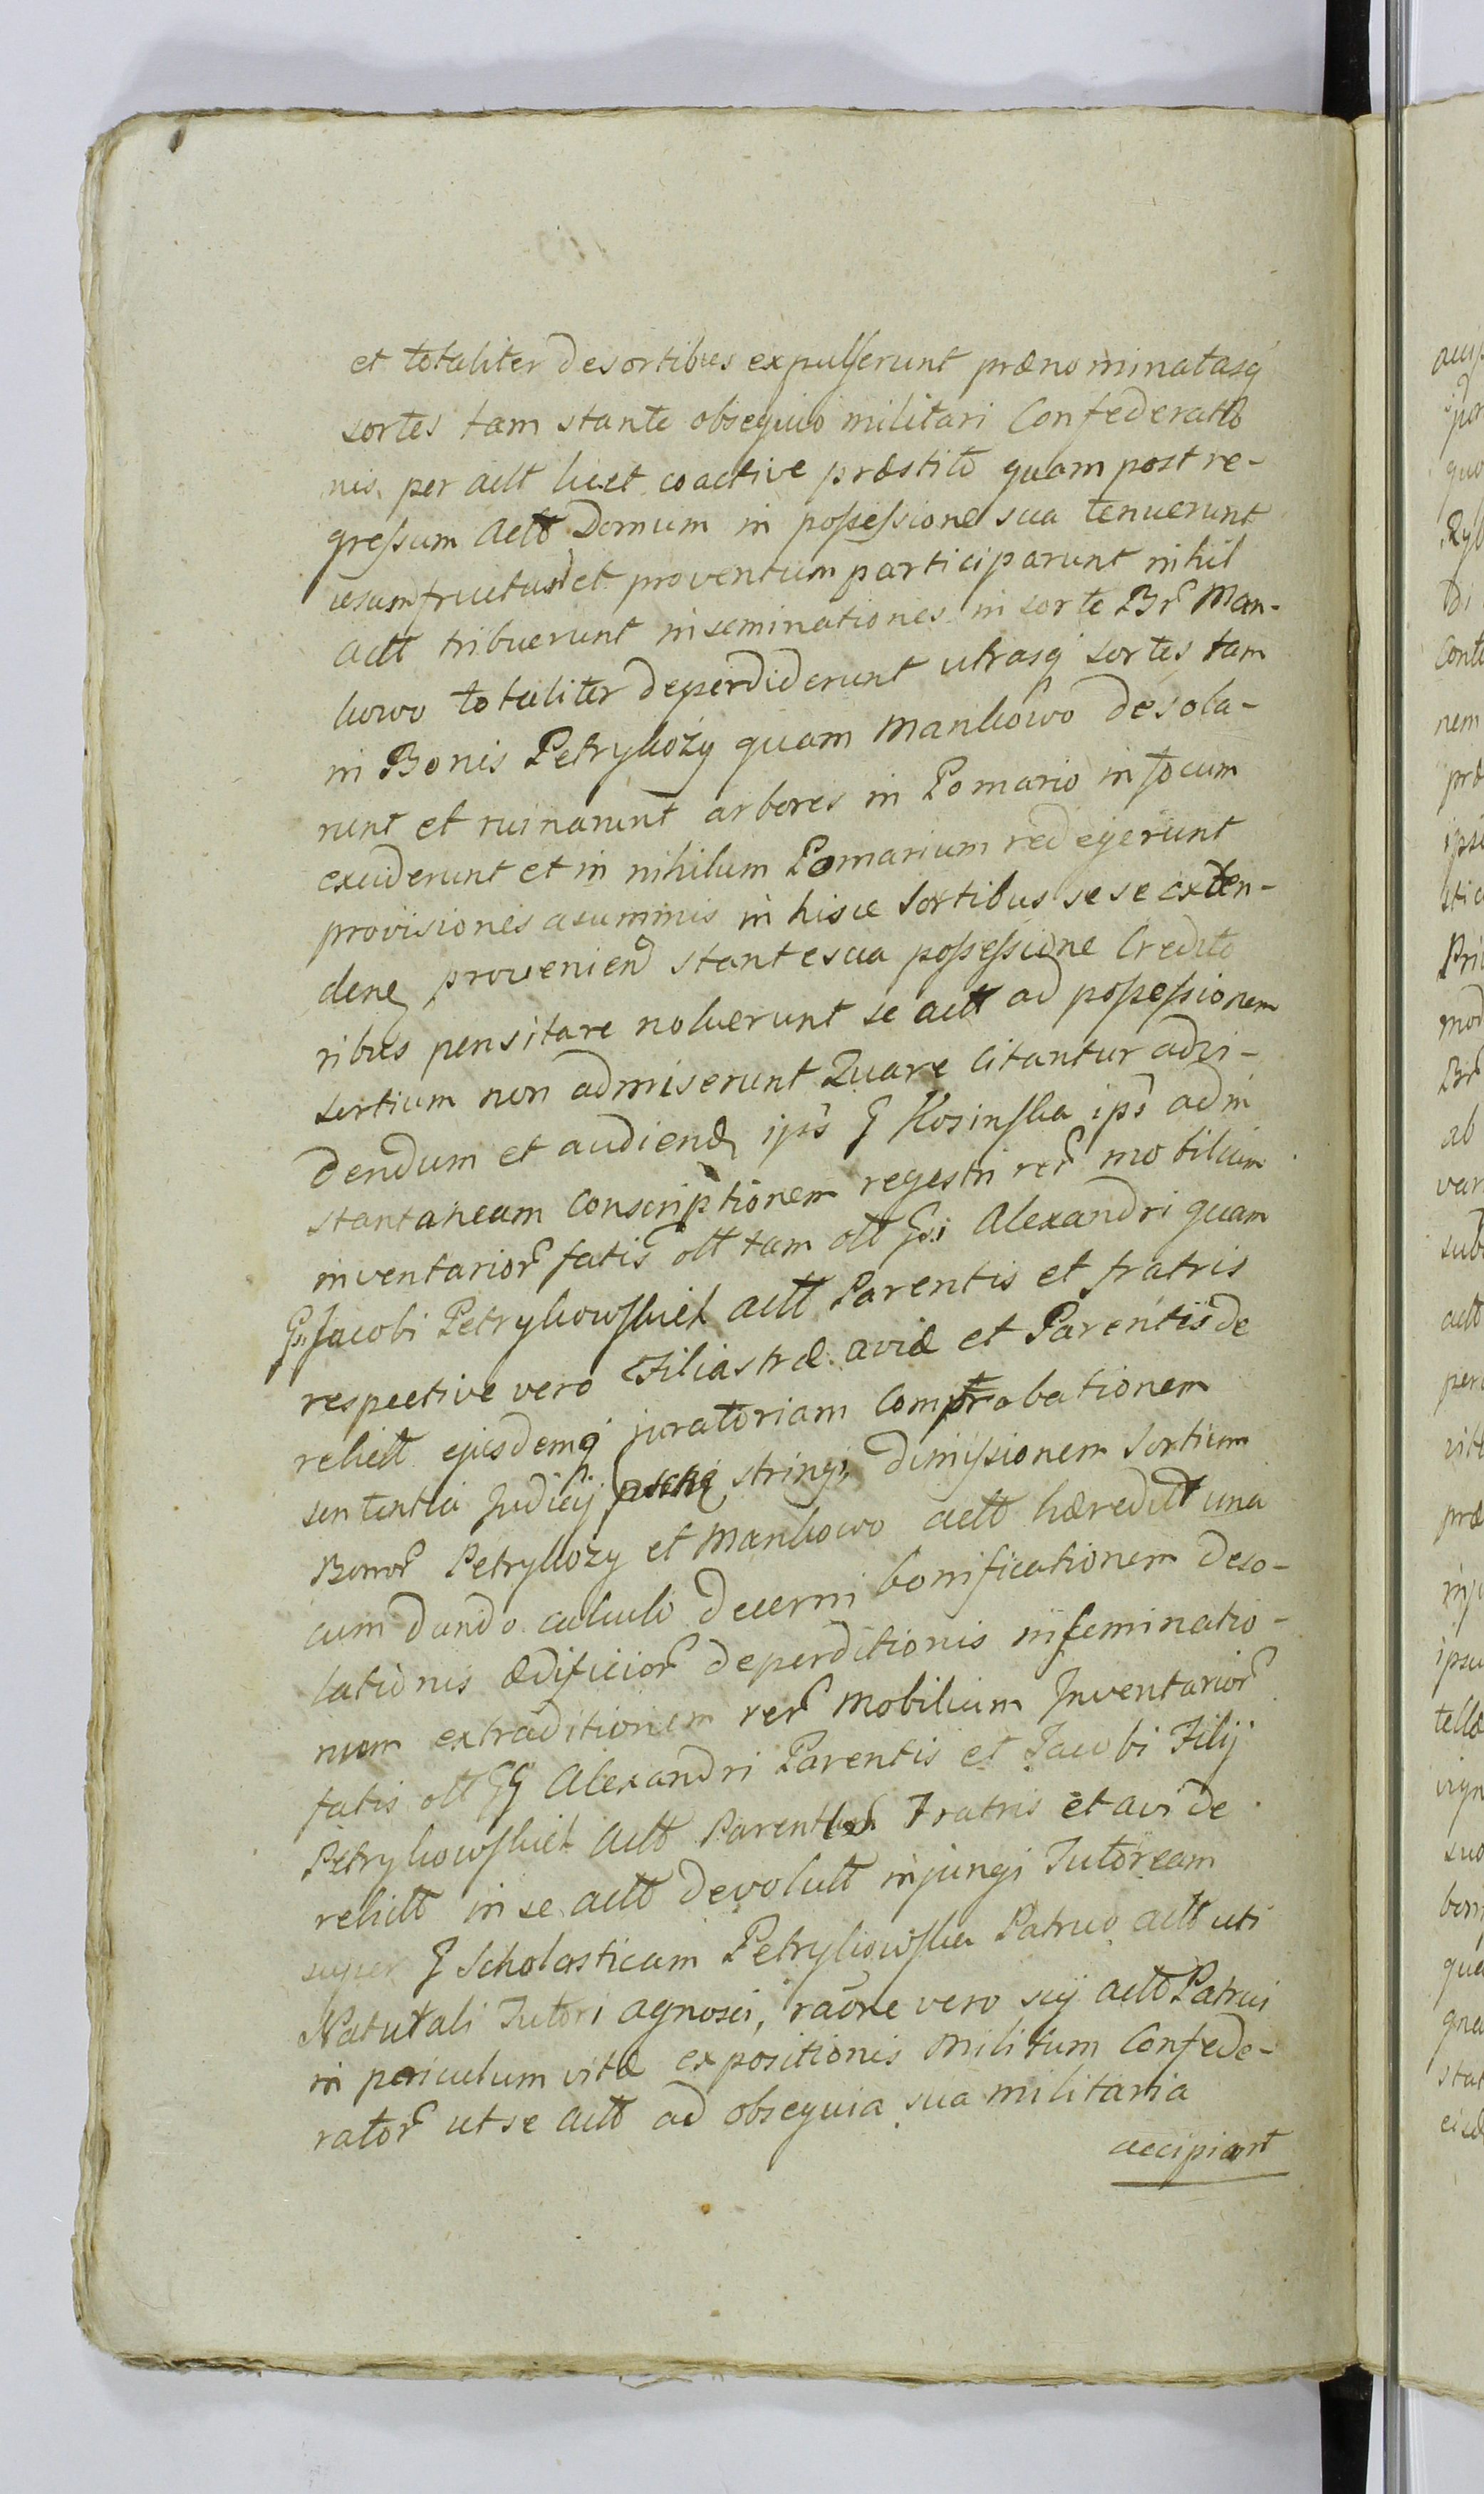 et totaliter de sortibus expulserunt prænominatasq
sortes tam stante obsequio militari Confederatio
nis per actt licet coactive præstito quam post re-
gressum Actt Domum in possessione sua tenuerunt
usumfructum et proventum participarunt nihil
actt tribuerunt inseminationes in sorte Br Man-
kowo totaliter deperdiderunt utrasq sortes tam
in Bonis Petrykozy quam Mankowo desola-
runt et ruinarunt arbores in Pomario in focum
exciderunt et in nihilum Pomarium redegerunt
provisiones a summis in hisce Sortibus se se exten-
den provenien stante sua possessione Credito
ribus pensitare noluerunt se actt ad possessionem
sortium non admiserunt Quare Citantur advi-
dendum et audiend ips G Kosinska ips ad in
stantaneam Conscriptionem regestri rer mobilium
inventarior fatis olt tam olt Gsi Alexandri quam
Gsi Jacobi Petrykowskich actt Parentis et fratris
respective vero Filiastræ aviæ et Parentis de
relict ejusdemq juratoriam Comprobationem
sententia Judicij pschi stringi, dimissionem Sortium
Bonor Petrykozy et Mankowo actt hæredit una
cum dando calculo decerni bonificationem deso-
lationis ædificior deperditionis inseminatio-
num extraditionem rer Mobilium Inventarior
fatis olt GG Alexandri Parentis et Jacobi Filij
Petrykowskich Actt Parent Fratris et avi de
relictt in se actt devolutt injungi Tutoream
super G Scholasticam Petrykowska Patruo actt uti
Naturali Tutori agnosci, raone vero sui actt Patrui
in periculum vitæ expositionis Militum Confede-
rator ut se actt ad obsequia sua militaria
accipiant